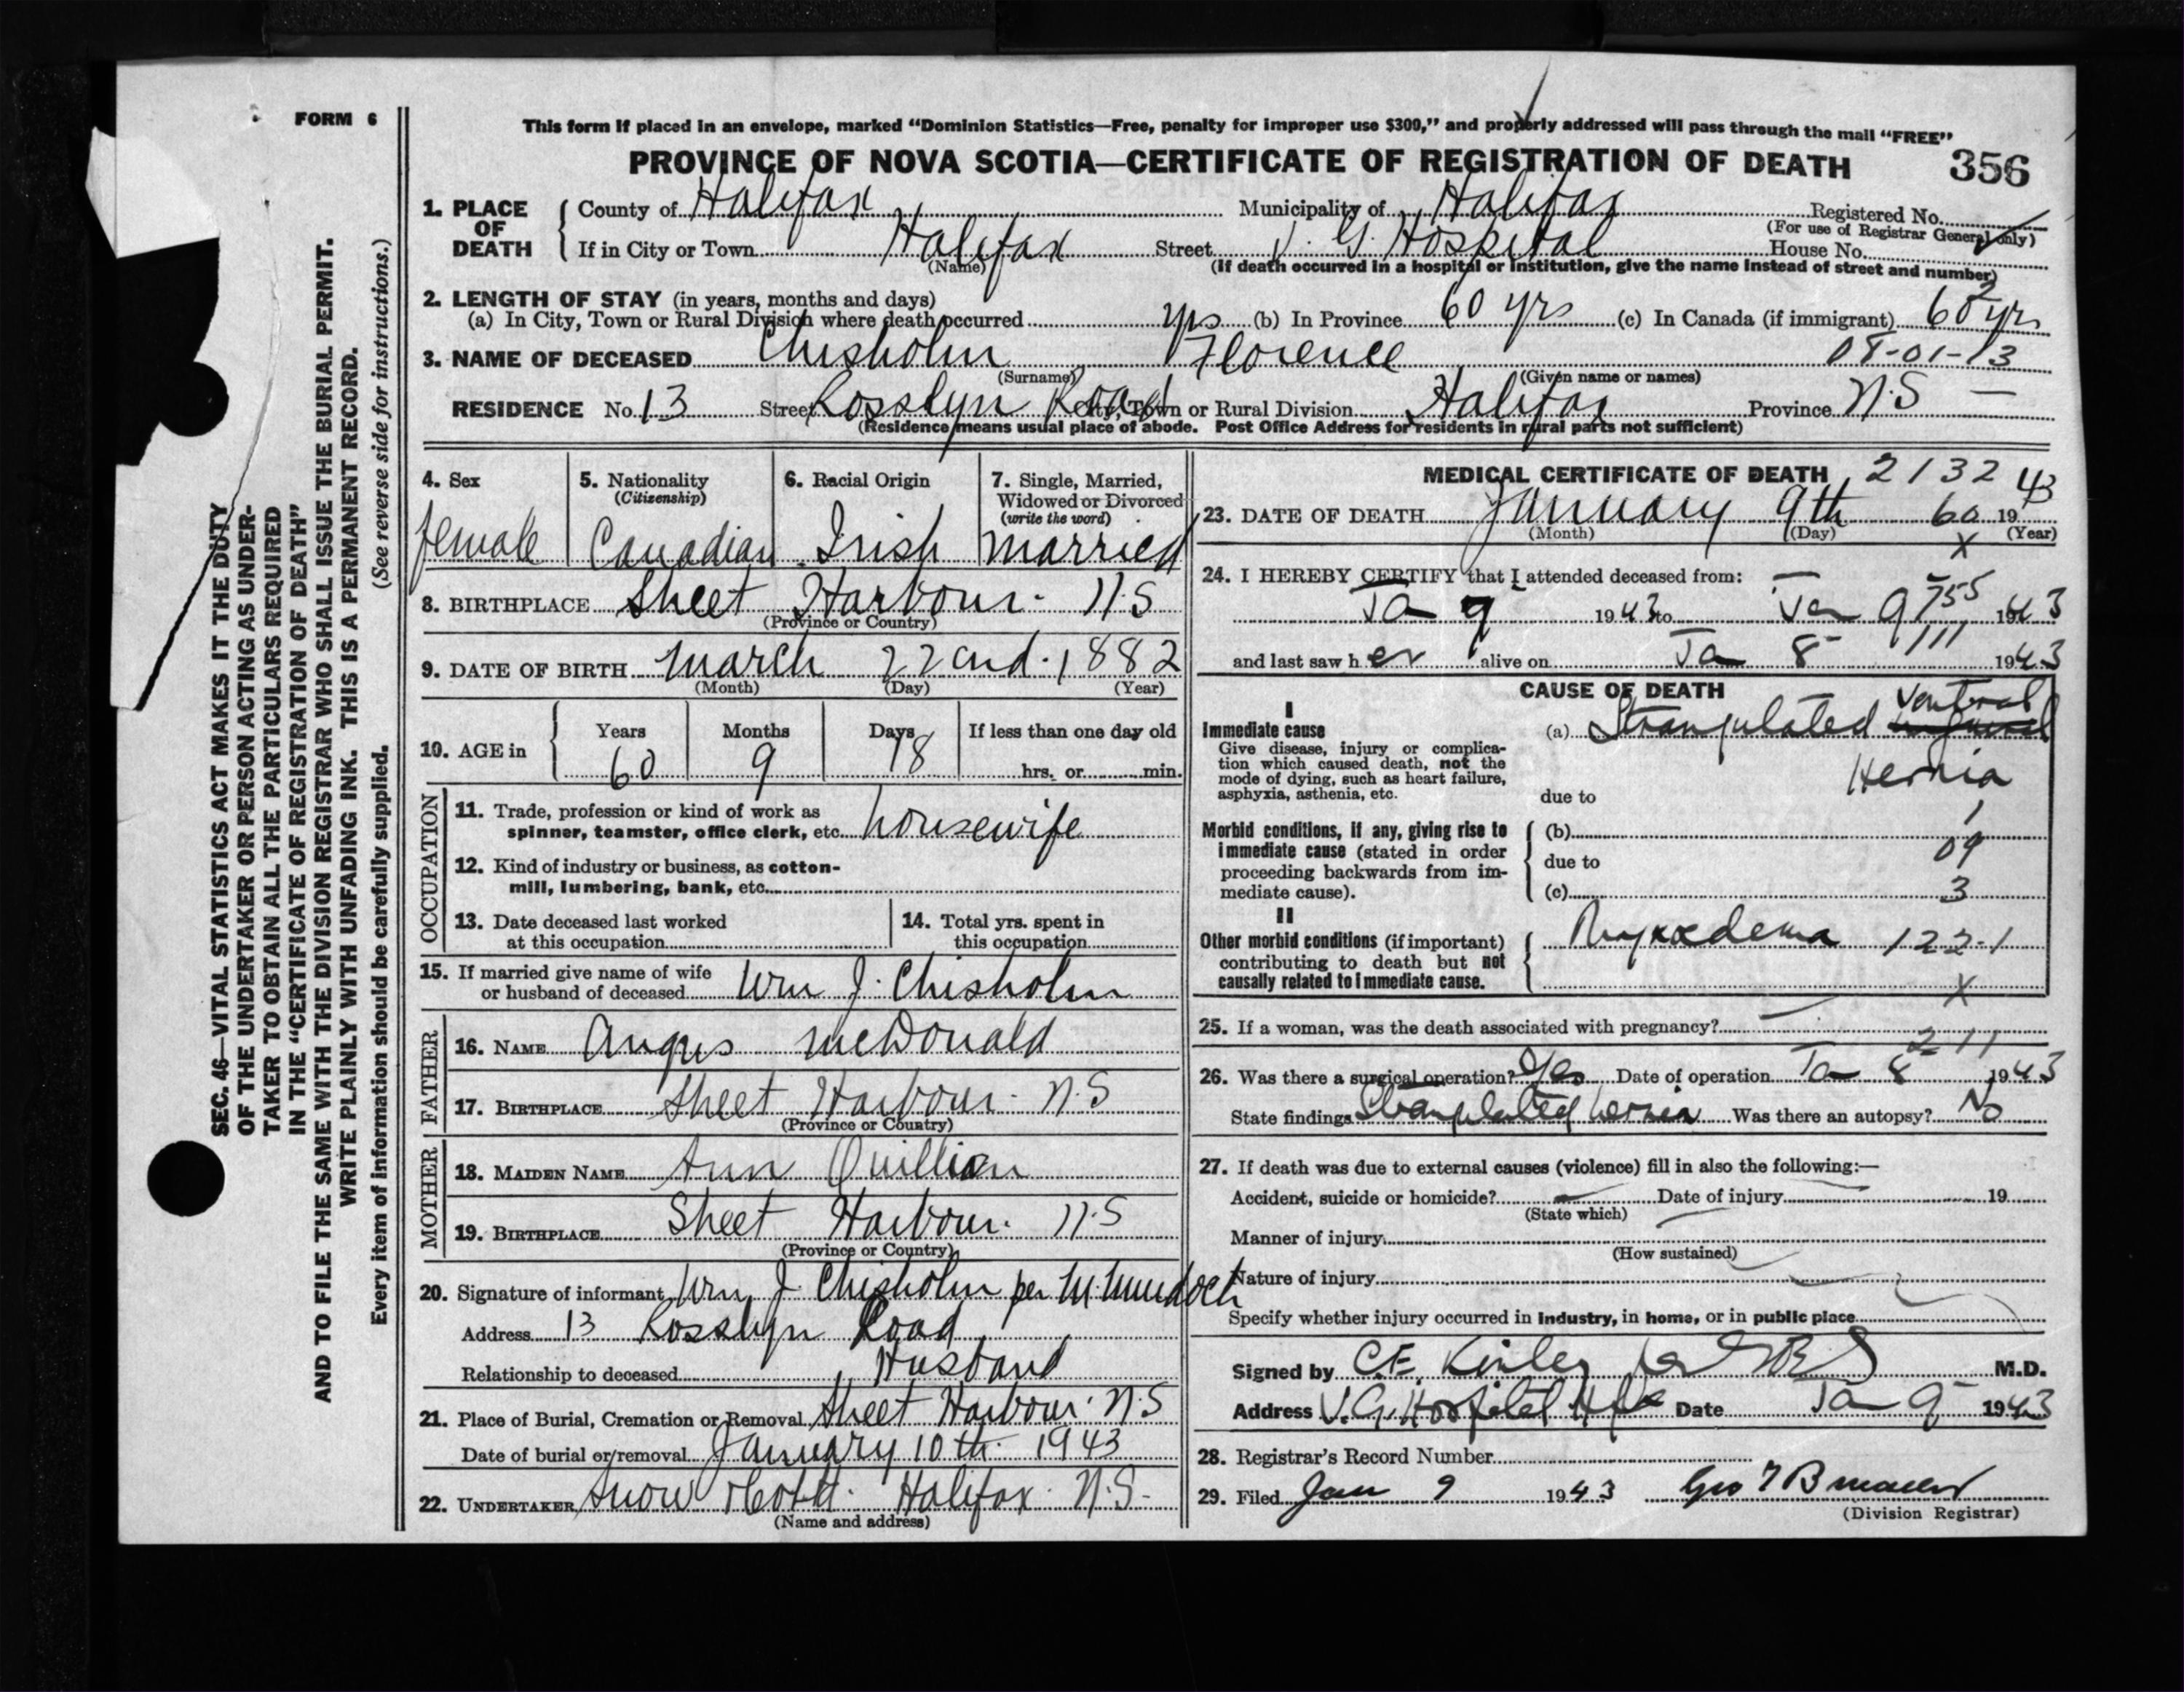 FORM 6
This form if placed in an envelope, marked “Dominion Statistics—Free, penalty for improper use $300,” and properly addressed will pass through the mail “FREE”
PROVINCE OF NOVA SCOTIA—CERTIFICATE OF REGISTRATION OF DEATH 356
1. PLACE OF DEATH { County of Halifax Municipality of Halifax Registered No.
(For use of Registrar General only)
If in City or Town Halifax Street V. G. Hospital House No.
(Name) (If death occurred in a hospital or institution, give the name instead of street and number)
2. LENGTH OF STAY (in years, months and days)
(a) In City, Town or Rural Division where death occurred yrs (b) In Province 60 yrs (c) In Canada (if immigrant) 60 yrs
3. NAME OF DECEASED Chisholm Florence 08-01-13
(Surname) (Given name or names)
RESIDENCE No. 13 Street Rosslyn Road City, Town or Rural Division Halifax Province N.S —
(Residence means usual place of abode. Post Office Address for residents in rural parts not sufficient)
4. Sex 5. Nationality 6. Racial Origin 7. Single, Married,
(Citizenship) Widowed or Divorced
(write the word)
female Canadian Irish married
8. BIRTHPLACE Sheet Harbour. N.S
(Province or Country)
9. DATE OF BIRTH March 22nd. 1882
(Month) (Day) (Year)
10. AGE in { Years Months Days If less than one day old
60 9 18 hrs. or min.
OCCUPATION
11. Trade, profession or kind of work as
spinner, teamster, office clerk, etc. housewife
12. Kind of industry or business, as cotton-
mill, lumbering, bank, etc.
13. Date deceased last worked
at this occupation
14. Total yrs. spent in
this occupation
15. If married give name of wife
or husband of deceased Wm J. Chisholm
FATHER
16. NAME Angus McDonald
17. BIRTHPLACE Sheet Harbour. N.S
(Province or Country)
MOTHER
18. MAIDEN NAME Ann Quillian
19. BIRTHPLACE Sheet Harbour. N.S
(Province or Country)
20. Signature of informant Wm J. Chisholm per M. Murdoch
Address 13 Rosslyn Road
Relationship to deceased Husband
21. Place of Burial, Cremation or Removal Sheet Harbour. N.S
Date of burial or removal January 10th. 1943
22. UNDERTAKER Snow Halifax. N.S.
(Name and address)
MEDICAL CERTIFICATE OF DEATH 2132
23. DATE OF DEATH January 9th 60 1943
(Month) (Day) (Year)
X
24. I HEREBY CERTIFY that I attended deceased from:
Ja 1943 to Jan 9 755 1943
111
and last saw her alive on Ja 8 1943
CAUSE OF DEATH
I
Immediate cause
Give disease, injury or complica-
tion which caused death, not the
mode of dying, such as heart failure,
asphyxia, asthenia, etc.
(a) Strangulated ventral
Hernia
due to
Morbid conditions, if any, giving rise to
immediate cause (stated in order
proceeding backwards from im-
mediate cause).
(b) 1
due to 09
(c) 3
II
Other morbid conditions (if important)
contributing to death but not
causally related to immediate cause.
Myxedema 122-1
X
25. If a woman, was the death associated with pregnancy? —
211
26. Was there a surgical operation? Yes Date of operation Ja 8 1943
State findings Strangulated hernia Was there an autopsy? No
27. If death was due to external causes (violence) fill in also the following:—
Accident, suicide or homicide? — Date of injury 19
(State which)
Manner of injury
(How sustained)
Nature of injury
Specify whether injury occurred in industry, in home, or in public place
Signed by C.E. Kinley M.D.
Address V.G. Hospital Hfx Date Ja 9 1943
28. Registrar's Record Number
29. Filed Jan 9 1943 Geo
(Division Registrar)
SEC. 46—VITAL STATISTICS ACT MAKES IT THE DUTY
OF THE UNDERTAKER OR PERSON ACTING AS UNDER-
TAKER TO OBTAIN ALL THE PARTICULARS REQUIRED
IN THE “CERTIFICATE OF REGISTRATION OF DEATH”
AND TO FILE THE SAME WITH THE DIVISION REGISTRAR WHO SHALL ISSUE THE BURIAL PERMIT.
WRITE PLAINLY WITH UNFADING INK. THIS IS A PERMANENT RECORD.
Every item of information should be carefully supplied. (See reverse side for instructions.)